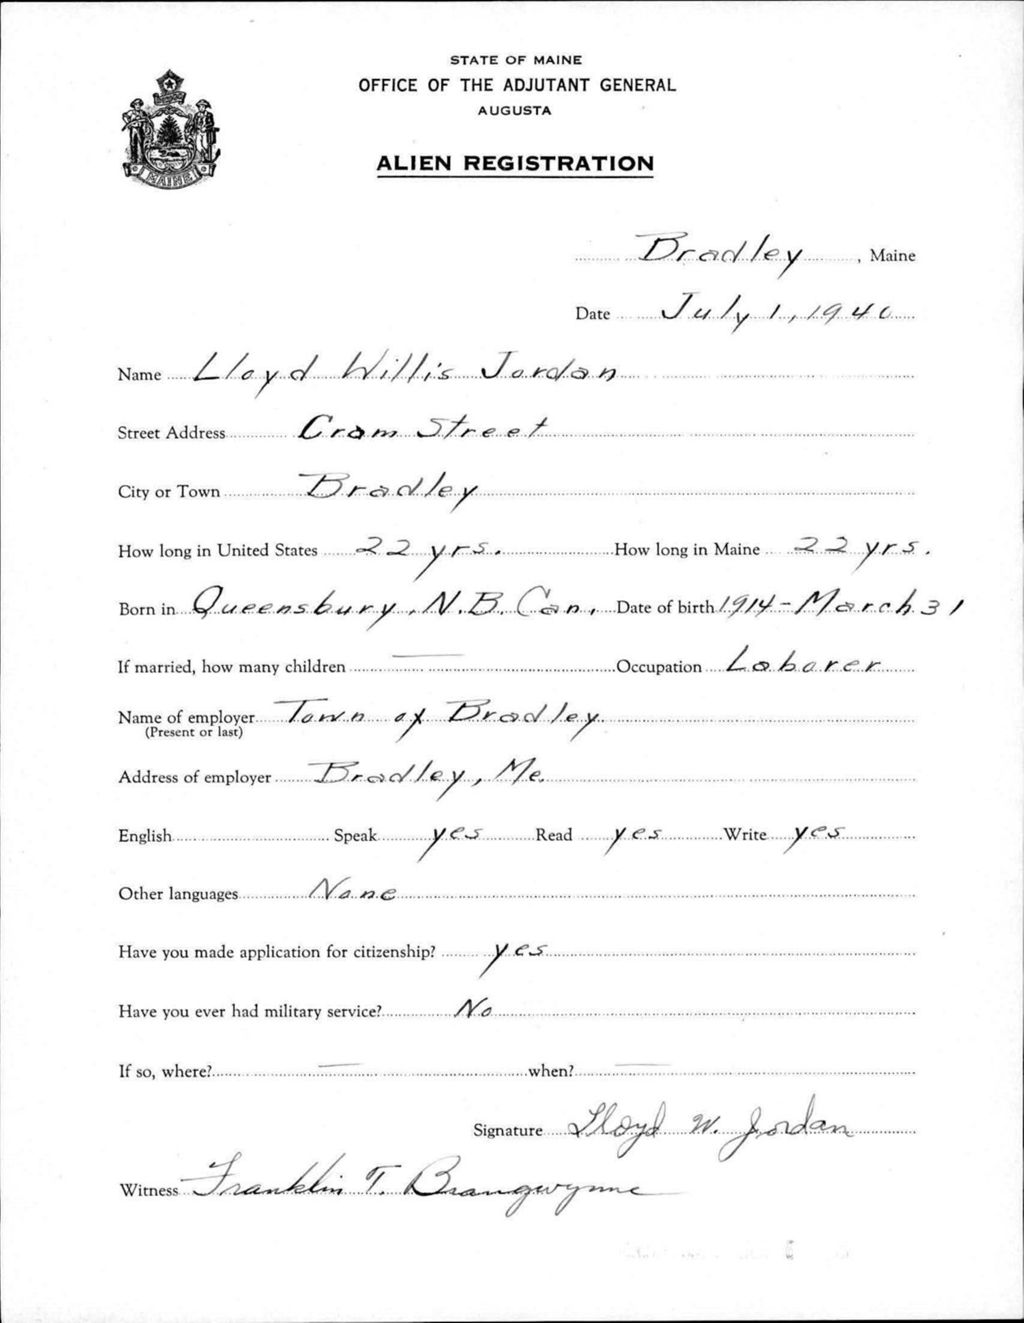 STATE OF MAINE
OFFICE OF THE ADJUTANT GENERAL
AUGUSTA
ALIEN REGISTRATION
MAINE
Bradley, Maine
Date July 1, 1940
Name Lloyd Willis Jordan
Street Address Cram Street
City or Town Bradley
How long in United States 22 yrs. How long in Maine 22 yrs.
Born in Queensbury, N.B. Can. Date of birth 1914 - March 31
If married, how many children — Occupation Laborer
Name of employer Town of Bradley
(Present or last)
Address of employer Bradley, Me.
English Speak yes Read yes Write yes
Other languages None
Have you made application for citizenship? yes
Have you ever had military service? No
If so, where? — when? —
Signature Lloyd W. Jordan
Witness Franklin T. Brangwynne